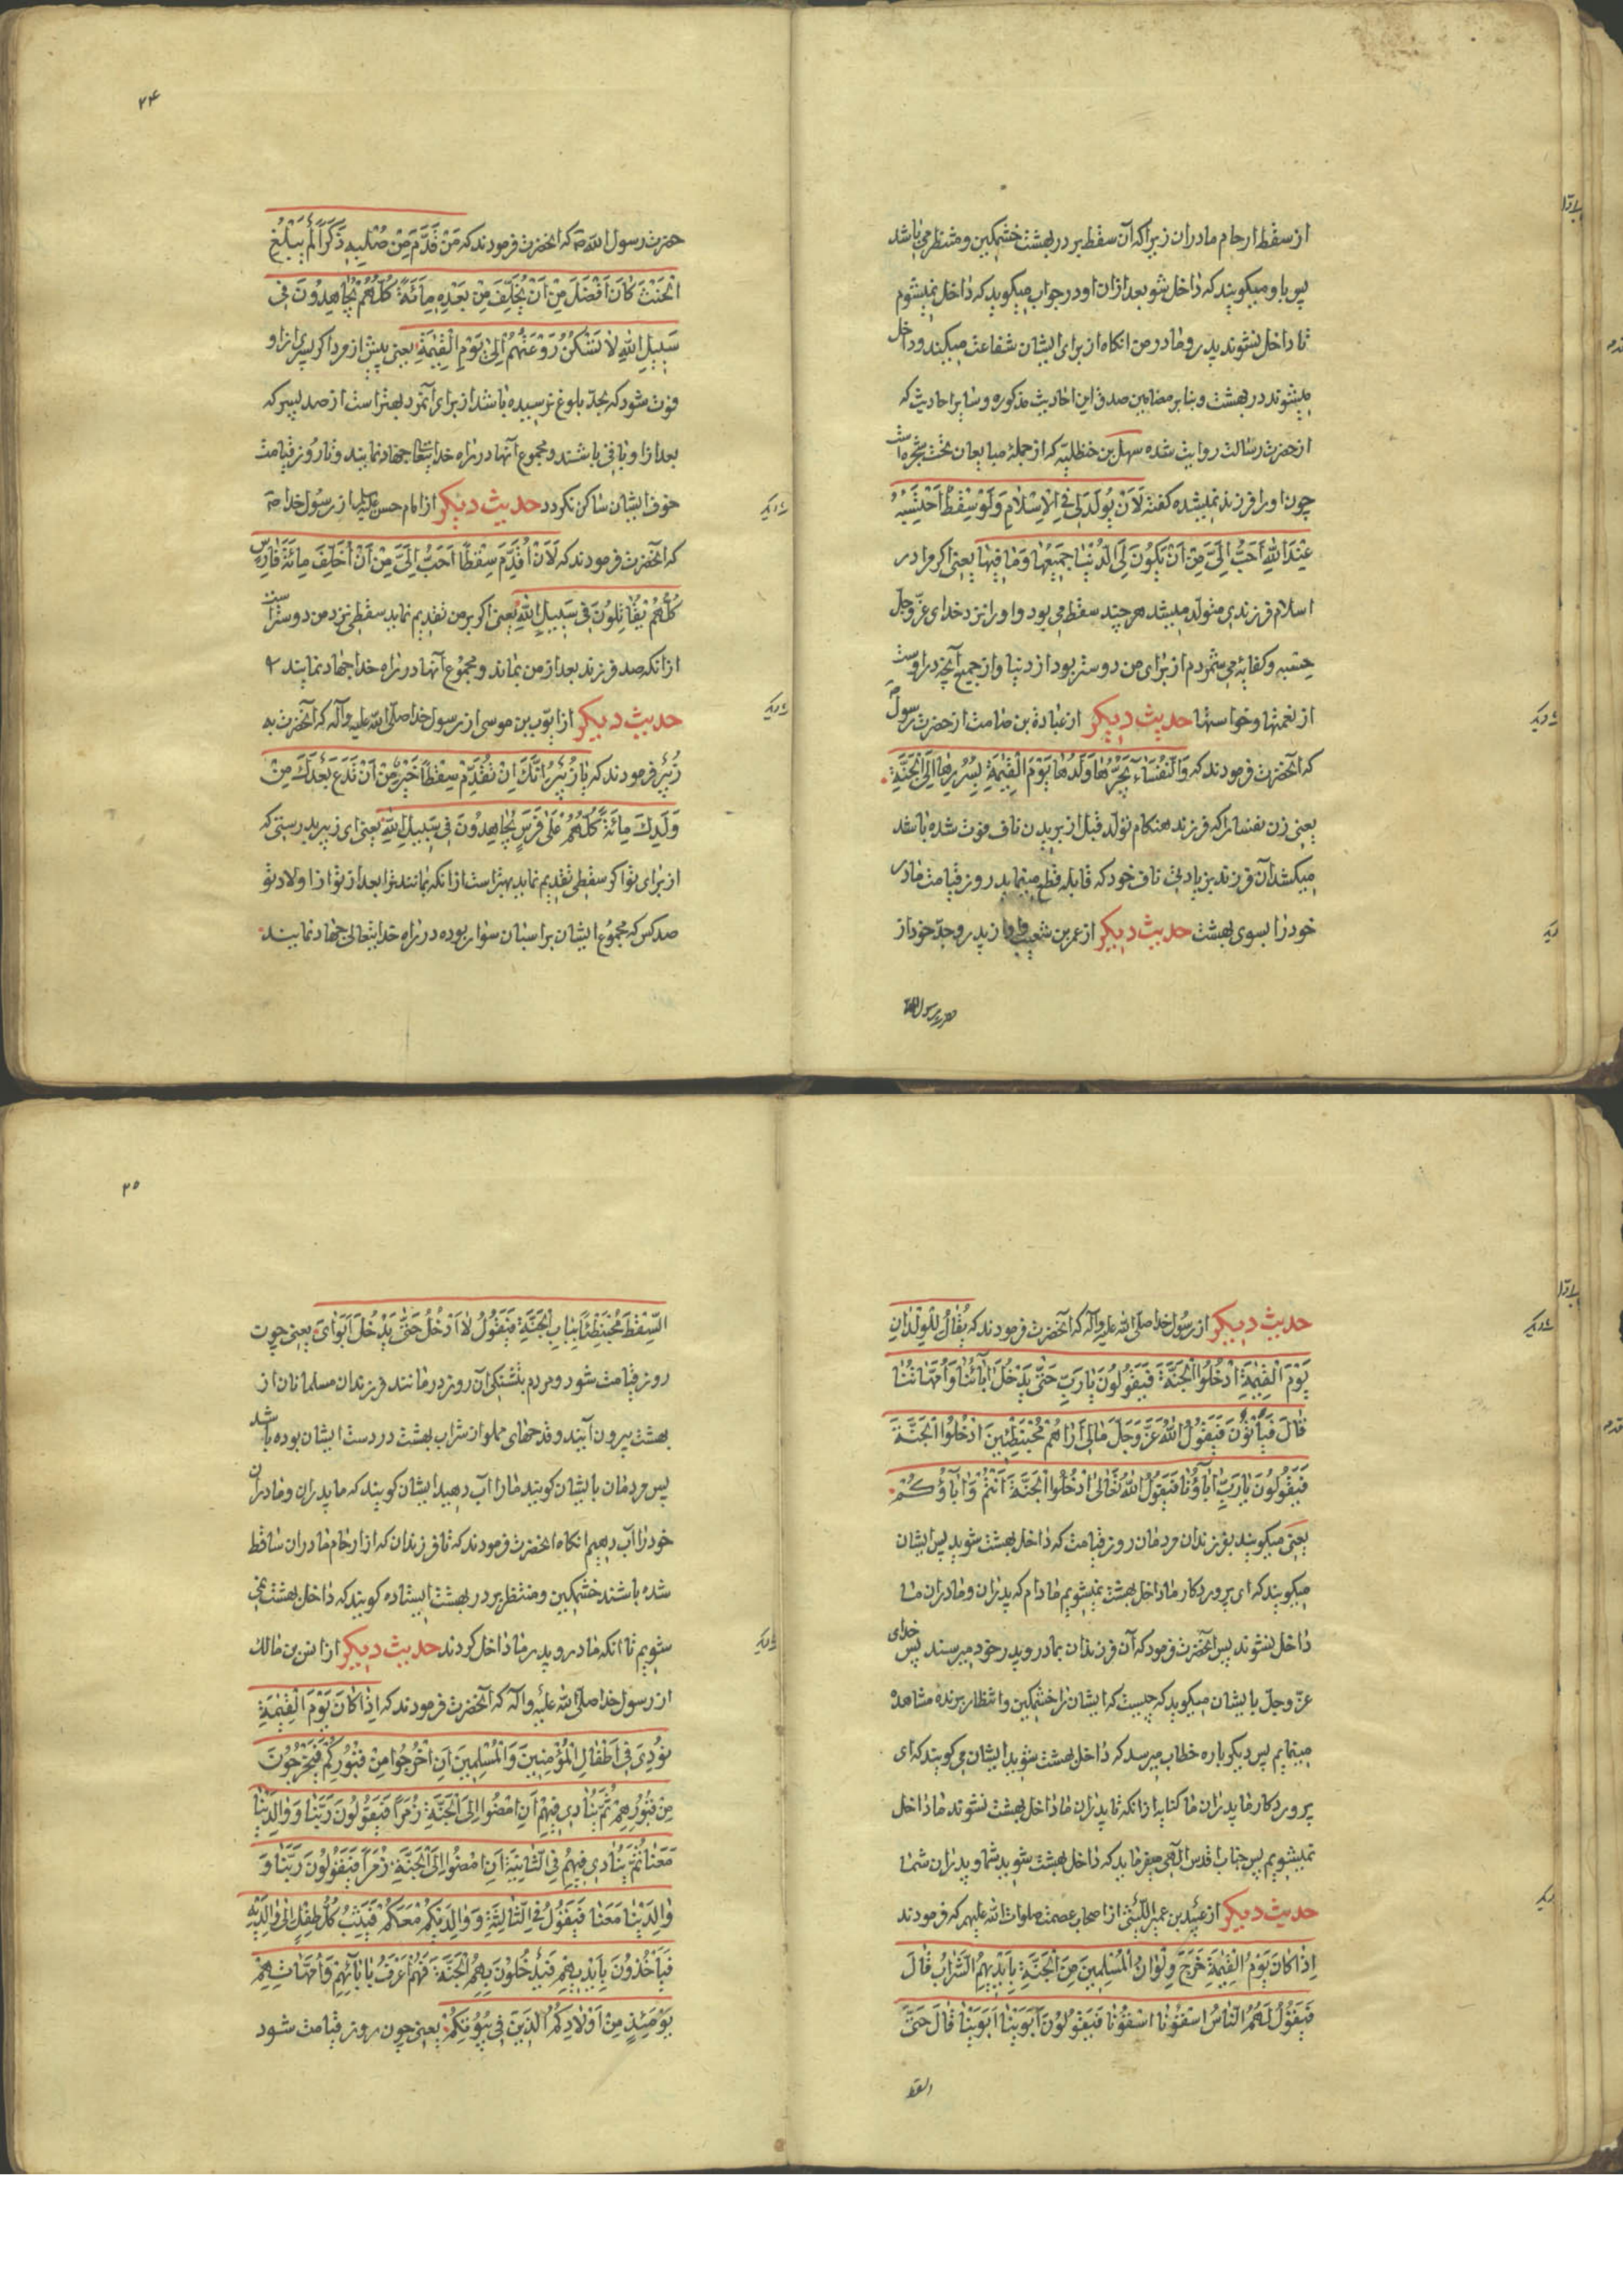 از سقط ارحام مادران زیرا که آن سقط بر در بهشت خشمکین و منتظر می باشد
پس باو میکویند که داخل شو بعد ازان او در جواب میکوید که داخل نمیشوم
تا داخل نشوند پدر و مادر من انکاه از برای ایشان شفاعت میکند و داخل
میشوند در بهشت و بنا بر مضامین صدق این احادیث مذکوره و سایر احادیث که
از حضرت رسالت روایت شده سهل بن حنظلیه که از جمله مبایعان تحت شجره است
چون او را فرزند نمیشده کفته لَاَنْ یُولَدَ لِی فِی الْاِسْلامِ وَلَوْ سِقْطٌ اَحْتَسِبُهُ
عِنْدَ اللهِ اَحَبُّ اِلَیَّ مِنْ اَنْ یَکُونَ لِیَ الدُّنْیا جَمِیعُها وَمٰا فِیهٰا یعنی اکر مرا در
اسلام فرزندی متولد میشد هر چند سقط می بود و او را نزد خدای عزّ وجلّ
حسبه و کفایه می شمردم از برای من دوستر بود از دنیا و از جمیع آنچه در اوست
از نعمتها و خواستها حدیث دیکر از عبادة بن صامت از حضرت رسول ص
که آنحضرت فرمودند که وَالنُّفَسٰاءُ یَجُرُّهٰا وَلَدُهٰا یَوْمَ الْقِیٰمَةِ بِسُرُرِهٰا اِلَی الْجَنَّةِ
یعنی زن نفسا را که فرزند هنکام تولد قبل از بریدن ناف فوت شده باشد
میکشد آن فرزند بزیادتی ناف خود که قابله قطع مینماید روز قیامت مادر
خود را بسوی بهشت حدیث دیکر از عمر بن شعیب از پدر و جدّ خود از
حضرت رسول الله
۲۴
حضرت رسول الله ص که انحضرت فرمودند که مَنْ قَدَّمَ مِنْ صُلْبِهِ ذَکَرًا لَمْ یَبْلُغِ
الْحِنْثَ کانَ اَفْضَلَ مِنْ اَنْ یُخَلِّفَ مِنْ بَعْدِهِ مِائَةً کُلُّهُمْ یُجاهِدُونَ فِی
سَبِیلِ اللهِ لاٰ تَسْکُنُ رَوْعَتُهُمْ اِلیٰ یَوْمِ الْقِیٰمَةِ یعنی پیش از مرد اکر پسری از او
فوت شود که بحدّ بلوغ نرسیده باشد از برای آنمرد بهتر است از صد پسر که
بعد از او باقی باشند و مجموع آنها در راه خدایتعا جهاد نمایند و تا روز قیامت
خوف ایشان ساکن نکردد حدیث دیکر از امام حسن علیه از رسول خدا ص
که آنحضرت فرمودند که لَاَنْ اُقَدِّمَ سِقْطًا اَحَبُّ اِلَیَّ مِنْ اَنْ اُخَلِّفَ مِائَةَ فٰارِسٍ
کُلُّهُمْ یُقٰاتِلُونَ فِی سَبِیلِ اللهِ یعنی اکر بر من تقدیم نماید سقطی نزد من دوستر است
از انکه صد فرزند بعد از من بماند و مجموع آنها در راه خدا جهاد نمایند
حدیث دیکر از ایّوب بن موسی از رسول خدا صلّی الله علیه وآله که آنحضرت به
زُبَیْر فرمودند که یا زُبَیْرُ اِنَّکَ اِنْ تُقَدِّمْ سِقْطًا خَیْرٌ مِنْ اَنْ تَدَعَ بَعْدَکَ مِنْ
وَلَدِکَ مِائَةً کُلُّهُمْ عَلیٰ فَرَسٍ یُجٰاهِدُونَ فِی سَبِیلِ اللهِ یعنی ای زبیر بدرستی که
از برای تو اکر سقطی تقدیم نماید بهتر است از انکه بمانند ترا بعد از تو از اولاد تو
صد کس که مجموع ایشان بر اسبان سوار بوده در راه خدایتعالی جهاد نمایند
حدیث دیکر از رسول خدا صلّی الله علیه وآله که آنحضرت فرمودند که یُقٰالُ لِلْوِلْدٰانِ
یَوْمَ الْقِیٰمَةِ ادْخُلُوا الْجَنَّةَ فَیَقُولُونَ یٰا رَبِّ حَتّٰی یَدْخُلَ آبٰائُنٰا وَاُمَّهٰاتُنٰا
قٰالَ فَیَأْتُونَ فَیَقُولُ اللهُ عَزَّ وَجَلَّ مٰالِی اَرٰاهُمْ مُحْبَنْطِئِینَ ادْخُلُوا الْجَنَّةَ
فَیَقُولُونَ یٰا رَبِّ آبٰاؤُنٰا فَیَقُولُ اللهُ تَعٰالیٰ ادْخُلُوا الْجَنَّةَ اَنْتُمْ وَآبٰاؤُکُمْ
یعنی میکویند بفرزندان مردمان روز قیامت که داخل بهشت شوید پس ایشان
میکویند که ای پروردکار ما داخل بهشت نمیشویم مادام که پدران و مادران ما
داخل نشوند پس آنحضرت فرمود که آن فرزندان بمادر و پدر خود میرسند پس خدای
عزّ وجلّ بایشان میکوید که چیست که ایشان را خشمکین و انتظار برنده مشاهده
مینمایم پس دیکر باره خطاب میرسد که داخل بهشت شوید ایشان می کویند که ای
پروردکار ما پدران ما کنایه از انکه تا پدران ما داخل بهشت نشوند ما داخل
نمیشویم پس جناب اقدس الهی میفرماید که داخل بهشت شوید شما و پدران شما
حدیث دیکر از عبید بن عمیر اللّیثی از اصحاب عصمت صلوات الله علیهم که فرمودند
اِذٰا کٰانَ یَوْمُ الْقِیٰمَةِ خَرَجَ وِلْدٰانُ الْمُسْلِمِینَ مِنَ الْجَنَّةِ بِاَیْدِیهِمُ الشَّرٰابُ قٰالَ
فَیَقُولُ لَهُمُ النّٰاسُ اسْقُونٰا اسْقُونٰا فَیَقُولُونَ اَبَوَیْنٰا اَبَوَیْنٰا قٰالَ حَتّٰی
السقط
۲۵
السِّقْطَ مُحْبَنْطِئًا بِبٰابِ الْجَنَّةِ فَیَقُولُ لاٰ اَدْخُلُ حَتّٰی یَدْخُلَ اَبَوٰایَ یعنی چون
روز قیامت شود و مردم بتشنکی آن روز درمانند فرزندان مسلمانان از
بهشت بیرون آیند و قدحهای مملو از شراب بهشت در دست ایشان بوده باشد
پس مردمان بایشان کویند ما را آب دهید ایشان کویند که ما پدران و مادران
خود را آب دهیم انکاه انحضرت فرمودند که تا فرزندان که از ارحام مادران ساقط
شده باشند خشمکین و منتظر بر در بهشت ایستاده کویند که داخل بهشت نمی
شویم تا انکه مادر و پدر ما داخل کردند حدیث دیکر از انس بن مالک
از رسول خدا صلّی الله علیه وآله که آنحضرت فرمودند که اِذٰا کٰانَ یَوْمَ الْقِیٰمَةِ
نُودِیَ فِی اَطْفٰالِ الْمُؤْمِنِینَ وَالْمُسْلِمِینَ اَنِ اخْرُجُوا مِنْ قُبُورِکُمْ فَیَخْرُجُونَ
مِنْ قُبُورِهِمْ ثُمَّ یُنٰادِی فِیهِمْ اَنِ امْضُوا اِلَی الْجَنَّةِ زُمَرًا فَیَقُولُونَ رَبَّنٰا وَوٰالِدَیْنٰا
مَعَنٰا ثُمَّ یُنٰادِی فِیهِمْ فِی الثّٰانِیَةِ اَنِ امْضُوا اِلَی الْجَنَّةِ زُمَرًا فَیَقُولُونَ رَبَّنٰا وَ
وٰالِدَیْنٰا مَعَنٰا فَیَقُولُ فِی الثّٰالِثَةِ وَوٰالِدَیْکُمْ مَعَکُمْ فَیَثِبُ کُلُّ طِفْلٍ اِلیٰ وٰالِدَیْهِ
فَیَأْخُذُونَ بِاَیْدِیهِمْ فَیَدْخُلُونَ بِهِمُ الْجَنَّةَ فَهُمْ اَعْرَفُ بِآبٰائِهِمْ وَاُمَّهٰاتِهِمْ
یَوْمَئِذٍ مِنْ اَوْلٰادِکُمُ الَّذِینَ فِی بُیُوتِکُمْ یعنی چون روز قیامت شود